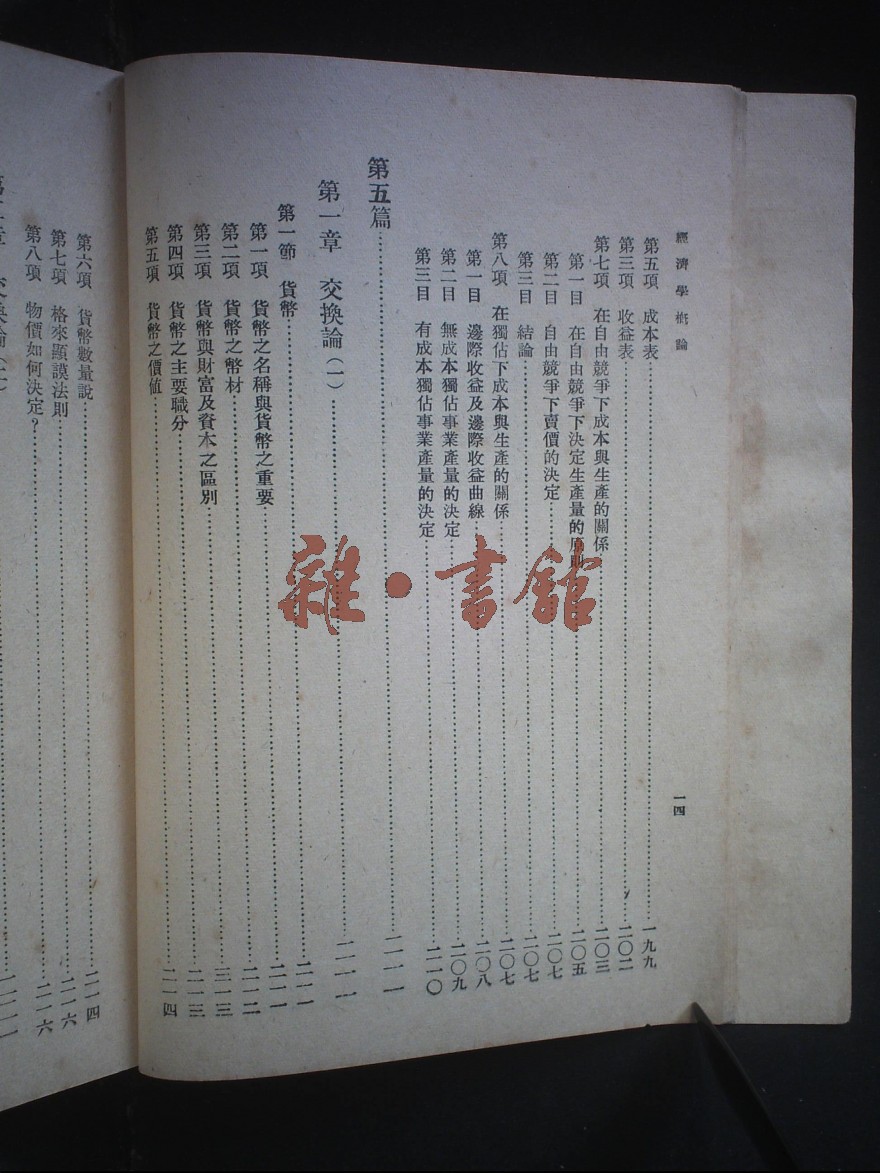 經濟學槪論
一四
第五項 成本表 一九九
第三項 收益表 二〇二
第七項 在自由競爭下成本與生產的關係 二〇三
第一目 在自由競爭下決定生產量的原則 二〇五
第二目 自由競爭下賣價的決定 二〇七
第三目 結論 二〇七
第八項 在獨佔下成本與生產的關係 二〇七
第一目 邊際收益及邊際收益曲線 二〇八
第二目 無成本獨佔事業產量的決定 二〇九
第三目 有成本獨佔事業產量的決定 二一〇
第五篇 二一一
第一章 交換論(一) 二一一
第一節 貨幣 二一一
第一項 貨幣之名稱與貨幣之重要 二一一
第二項 貨幣之幣材 二一二
第三項 貨幣與財富及資本之區別 三一三
第四項 貨幣之主要職分 二一三
第五項 貨幣之價値 二一四
第六項 貨幣數量說 二一四
第七項 格來顯謨法則 二一六
第八項 物價如何決定? 二一六
雜·書館